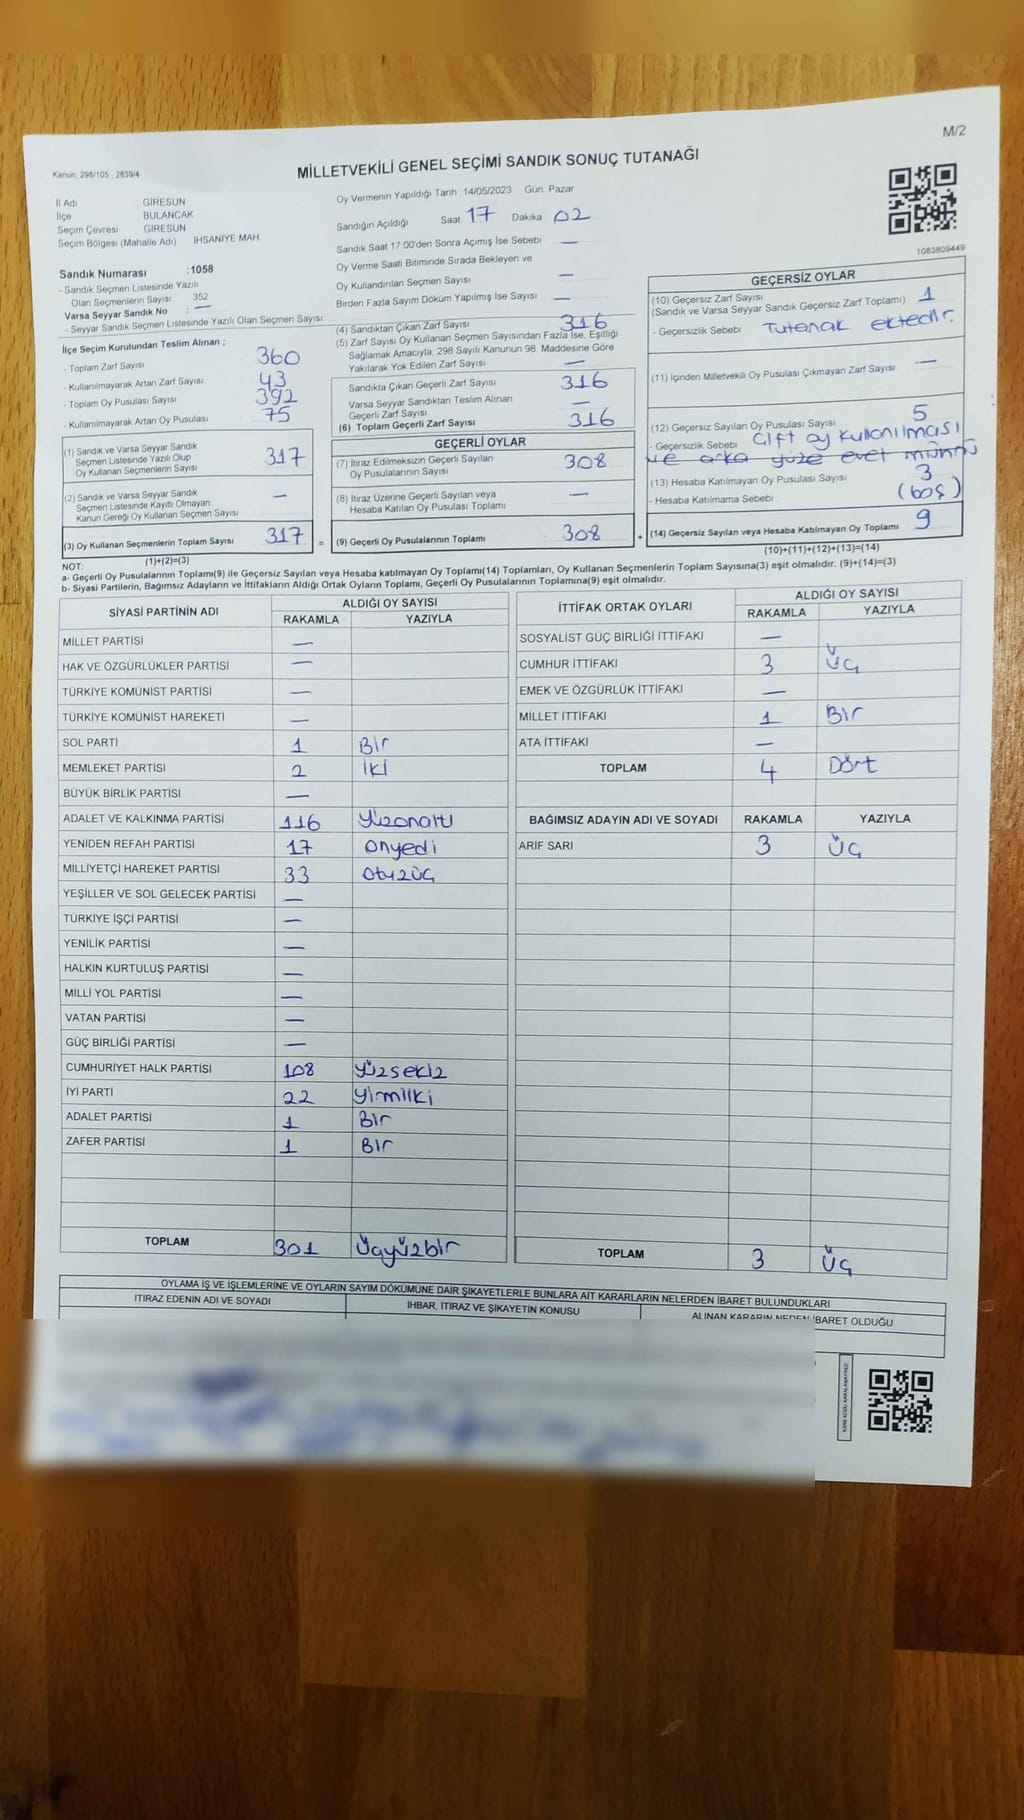 M/2
Kanun, 298/105 , 2839/4
MİLLETVEKİLİ GENEL SEÇİMİ SANDIK SONUÇ TUTANAĞI
İl Adı GİRESUN
İlçe BULANCAK
Seçim Çevresi GİRESUN
Seçim Bölgesi (Mahalle Adı) İHSANİYE MAH
Sandık Numarası :1058
- Sandık Seçmen Listesinde Yazılı
Olan Seçmenlerin Sayısı 352
Varsa Seyyar Sandık No : —
- Seyyar Sandık Seçmen Listesinde Yazılı Olan Seçmen Sayısı
Oy Vermenin Yapıldığı Tarih 14/05/2023 Gün: Pazar
Sandığın Açıldığı Saat 17 Dakika 02
Sandık Saat 17:00'den Sonra Açımış İse Sebebi —
Oy Verme Saati Bitiminde Sırada Bekleyen ve
Oy Kullandırılan Seçmen Sayısı —
Birden Fazla Sayım Döküm Yapılmış İse Sayısı —
1083809449
İlçe Seçim Kurulundan Teslim Alınan ;
- Toplam Zarf Sayısı 360
- Kullanılmayarak Artan Zarf Sayısı 43
- Toplam Oy Pusulası Sayısı 392
- Kullanılmayarak Artan Oy Pusulası 75
(1) Sandık ve Varsa Seyyar Sandık
Seçmen Listesinde Yazılı Olup
Oy Kullanan Seçmenlerin Sayısı 317
(2) Sandık ve Varsa Seyyar Sandık
Seçmen Listesinde Kayıtlı Olmayan
Kanun Gereği Oy Kullanan Seçmen Sayısı —
(3) Oy Kullanan Seçmenlerin Toplam Sayısı 317 =
(1)+(2)=(3)
(4) Sandıktan Çıkan Zarf Sayısı 316
(5) Zarf Sayısı Oy Kullanan Seçmen Sayısından Fazla İse, Eşitliği
Sağlamak Amacıyla, 298 Sayılı Kanunun 98. Maddesine Göre
Yakılarak Yok Edilen Zarf Sayısı —
Sandıkta Çıkan Geçerli Zarf Sayısı 316
Varsa Seyyar Sandıktan Teslim Alınan
Geçerli Zarf Sayısı —
(6) Toplam Geçerli Zarf Sayısı 316
GEÇERLİ OYLAR
(7) İtiraz Edilmeksizin Geçerli Sayılan
Oy Pusulalarının Sayısı 308
(8) İtiraz Üzerine Geçerli Sayılan veya
Hesaba Katılan Oy Pusulası Toplamı —
(9) Geçerli Oy Pusulalarının Toplamı 308 +
GEÇERSİZ OYLAR
(10) Geçersiz Zarf Sayısı
(Sandık ve Varsa Seyyar Sandık Geçersiz Zarf Toplamı) 1
- Geçersizlik Sebebi Tutanak ektedir.
(11) İçinden Milletvekili Oy Pusulası Çıkmayan Zarf Sayısı —
(12) Geçersiz Sayılan Oy Pusulası Sayısı 5
- Geçersizlik Sebebi Çift oy kullanılması
ve arka yüze evet mührü
(13) Hesaba Katılmayan Oy Pusulası Sayısı 3
- Hesaba Katılmama Sebebi (boş)
(14) Geçersiz Sayılan veya Hesaba Katılmayan Oy Toplamı 9
(10)+(11)+(12)+(13)=(14)
NOT:
a- Geçerli Oy Pusulalarının Toplamı(9) ile Geçersiz Sayılan veya Hesaba katılmayan Oy Toplamı(14) Toplamları, Oy Kullanan Seçmenlerin Toplam Sayısına(3) eşit olmalıdır. (9)+(14)=(3)
b- Siyasi Partilerin, Bağımsız Adayların ve İttifakların Aldığı Ortak Oyların Toplamı, Geçerli Oy Pusulalarının Toplamına(9) eşit olmalıdır.
SİYASİ PARTİNİN ADI ALDIĞI OY SAYISI
RAKAMLA YAZIYLA
MİLLET PARTİSİ —
HAK VE ÖZGÜRLÜKLER PARTİSİ —
TÜRKİYE KOMÜNİST PARTİSİ —
TÜRKİYE KOMÜNİST HAREKETİ —
SOL PARTİ 1 Bir
MEMLEKET PARTİSİ 2 İki
BÜYÜK BİRLİK PARTİSİ —
ADALET VE KALKINMA PARTİSİ 116 Yüzonaltı
YENİDEN REFAH PARTİSİ 17 Onyedi
MİLLİYETÇİ HAREKET PARTİSİ 33 Otuzüç
YEŞİLLER VE SOL GELECEK PARTİSİ —
TÜRKİYE İŞÇİ PARTİSİ —
YENİLİK PARTİSİ —
HALKIN KURTULUŞ PARTİSİ —
MİLLİ YOL PARTİSİ —
VATAN PARTİSİ —
GÜÇ BİRLİĞİ PARTİSİ —
CUMHURİYET HALK PARTİSİ 108 Yüzsekiz
İYİ PARTİ 22 Yirmiiki
ADALET PARTİSİ 1 Bir
ZAFER PARTİSİ 1 Bir
TOPLAM 301 Üçyüzbir
İTTİFAK ORTAK OYLARI ALDIĞI OY SAYISI
RAKAMLA YAZIYLA
SOSYALİST GÜÇ BİRLİĞİ İTTİFAKI —
CUMHUR İTTİFAKI 3 Üç
EMEK VE ÖZGÜRLÜK İTTİFAKI —
MİLLET İTTİFAKI 1 Bir
ATA İTTİFAKI —
TOPLAM 4 Dört
BAĞIMSIZ ADAYIN ADI VE SOYADI RAKAMLA YAZIYLA
ARİF SARI 3 Üç
TOPLAM 3 Üç
OYLAMA İŞ VE İŞLEMLERİNE VE OYLARIN SAYIM DÖKÜMÜNE DAİR ŞİKAYETLERLE BUNLARA AİT KARARLARIN NELERDEN İBARET BULUNDUKLARI
İTİRAZ EDENİN ADI VE SOYADI İHBAR, İTİRAZ VE ŞİKAYETİN KONUSU ALINAN KARARIN NEDEN İBARET OLDUĞU
KARE KODU KARALAMAYINIZ!